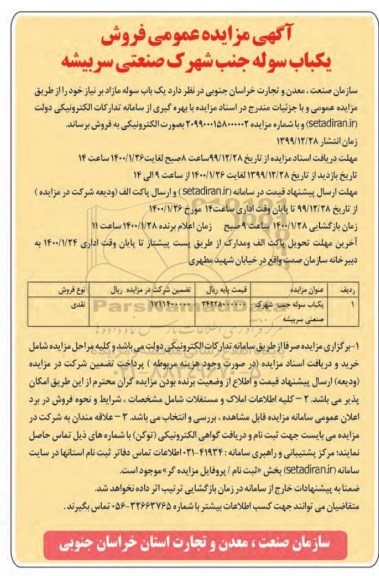 آگهی مزایده عمومی فروش
یکباب سوله جنب شهرک صنعتی سربیشه
سازمان صنعت، معدن و تجارت خراسان جنوبی در نظر دارد یک باب سوله مازاد بر نیاز خود را از طریق
مزایده عمومی و با جزئیات مندرج در اسناد مزایده با بهره گیری از سامانه تدارکات الکترونیکی دولت
(setadiran.ir) و با شماره مزایده ۲۰۹۹۰۰۰۱۵۸۰۰۰۰۰۲ بصورت الکترونیکی به فروش برساند.
زمان انتشار ۱۳۹۹/۱۲/۲۸
مهلت دریافت اسناد مزایده از تاریخ ۹۹/۱۲/۲۸ ساعت ۸ صبح لغایت ۱۴۰۰/۱/۲۶ ساعت ۱۴
تاریخ بازدید از تاریخ ۱۳۹۹/۱۲/۲۸ لغایت ۱۴۰۰/۱/۲۶ از ساعت ۹ الی ۱۴
مهلت ارسال پیشنهاد قیمت در سامانه (setadiran.ir) و ارسال پاکت الف (ودیعه شرکت در مزایده)
از تاریخ ۹۹/۱۲/۲۸ تا پایان وقت اداری ساعت ۱۴ مورخ ۱۴۰۰/۱/۲۶
زمان بازگشایی ۱۴۰۰/۱/۲۸ ساعت ۹ صبح زمان اعلام برنده ۱۴۰۰/۱/۲۸ ساعت ۱۱
آخرین مهلت تحویل پاکت الف ومدارک از طریق پست پیشتاز تا پایان وقت اداری ۱۴۰۰/۱/۲۴ به
دبیرخانه سازمان صمت واقع در خیابان شهید مطهری
ردیف عنوان مزایده قیمت پایه ریال تضمین شرکت در مزایده ریال نوع فروش
۱ یکباب سوله جنب شهرک صنعتی سربیشه ۳۴۲۲۸۰۰۰۰۰۰ ۱۷۱۱۴۰۰۰۰۰ نقدی
ParsNamadData
۱- برگزاری مزایده صرفا از طریق سامانه تدارکات الکترونیکی دولت می باشد و کلیه مراحل مزایده شامل
خرید و دریافت اسناد مزایده (در صورت وجود هزینه مربوطه) پرداخت تضمین شرکت در مزایده
(ودیعه) ارسال پیشنهاد قیمت و اطلاع از وضعیت برنده بودن مزایده گران محترم از این طریق امکان
پذیر می باشد. ۲- کلیه اطلاعات املاک و مستغلات شامل مشخصات، شرایط و نحوه فروش در برد
اعلان عمومی سامانه مزایده قابل مشاهده، بررسی و انتخاب می باشد. ۳- علاقه مندان به شرکت در
مزایده می بایست جهت ثبت نام و دریافت گواهی الکترونیکی (توکن) با شماره های ذیل تماس حاصل
نمایند؛ مرکز پشتیبانی و راهبری سامانه: ۴۱۹۳۴-۰۲۱ اطلاعات تماس دفاتر ثبت نام استانها در سایت
سامانه (setadiran.ir) بخش «ثبت نام / پروفایل مزایده گر» موجود است.
ضمنا به پیشنهادات خارج از سامانه در زمان بازگشایی ترتیب اثر داده نخواهد شد.
متقاضیان می توانند جهت کسب اطلاعات بیشتر با شماره ۳۲۶۶۳۷۶۵-۰۵۶ تماس بگیرند.
سازمان صنعت، معدن و تجارت استان خراسان جنوبی